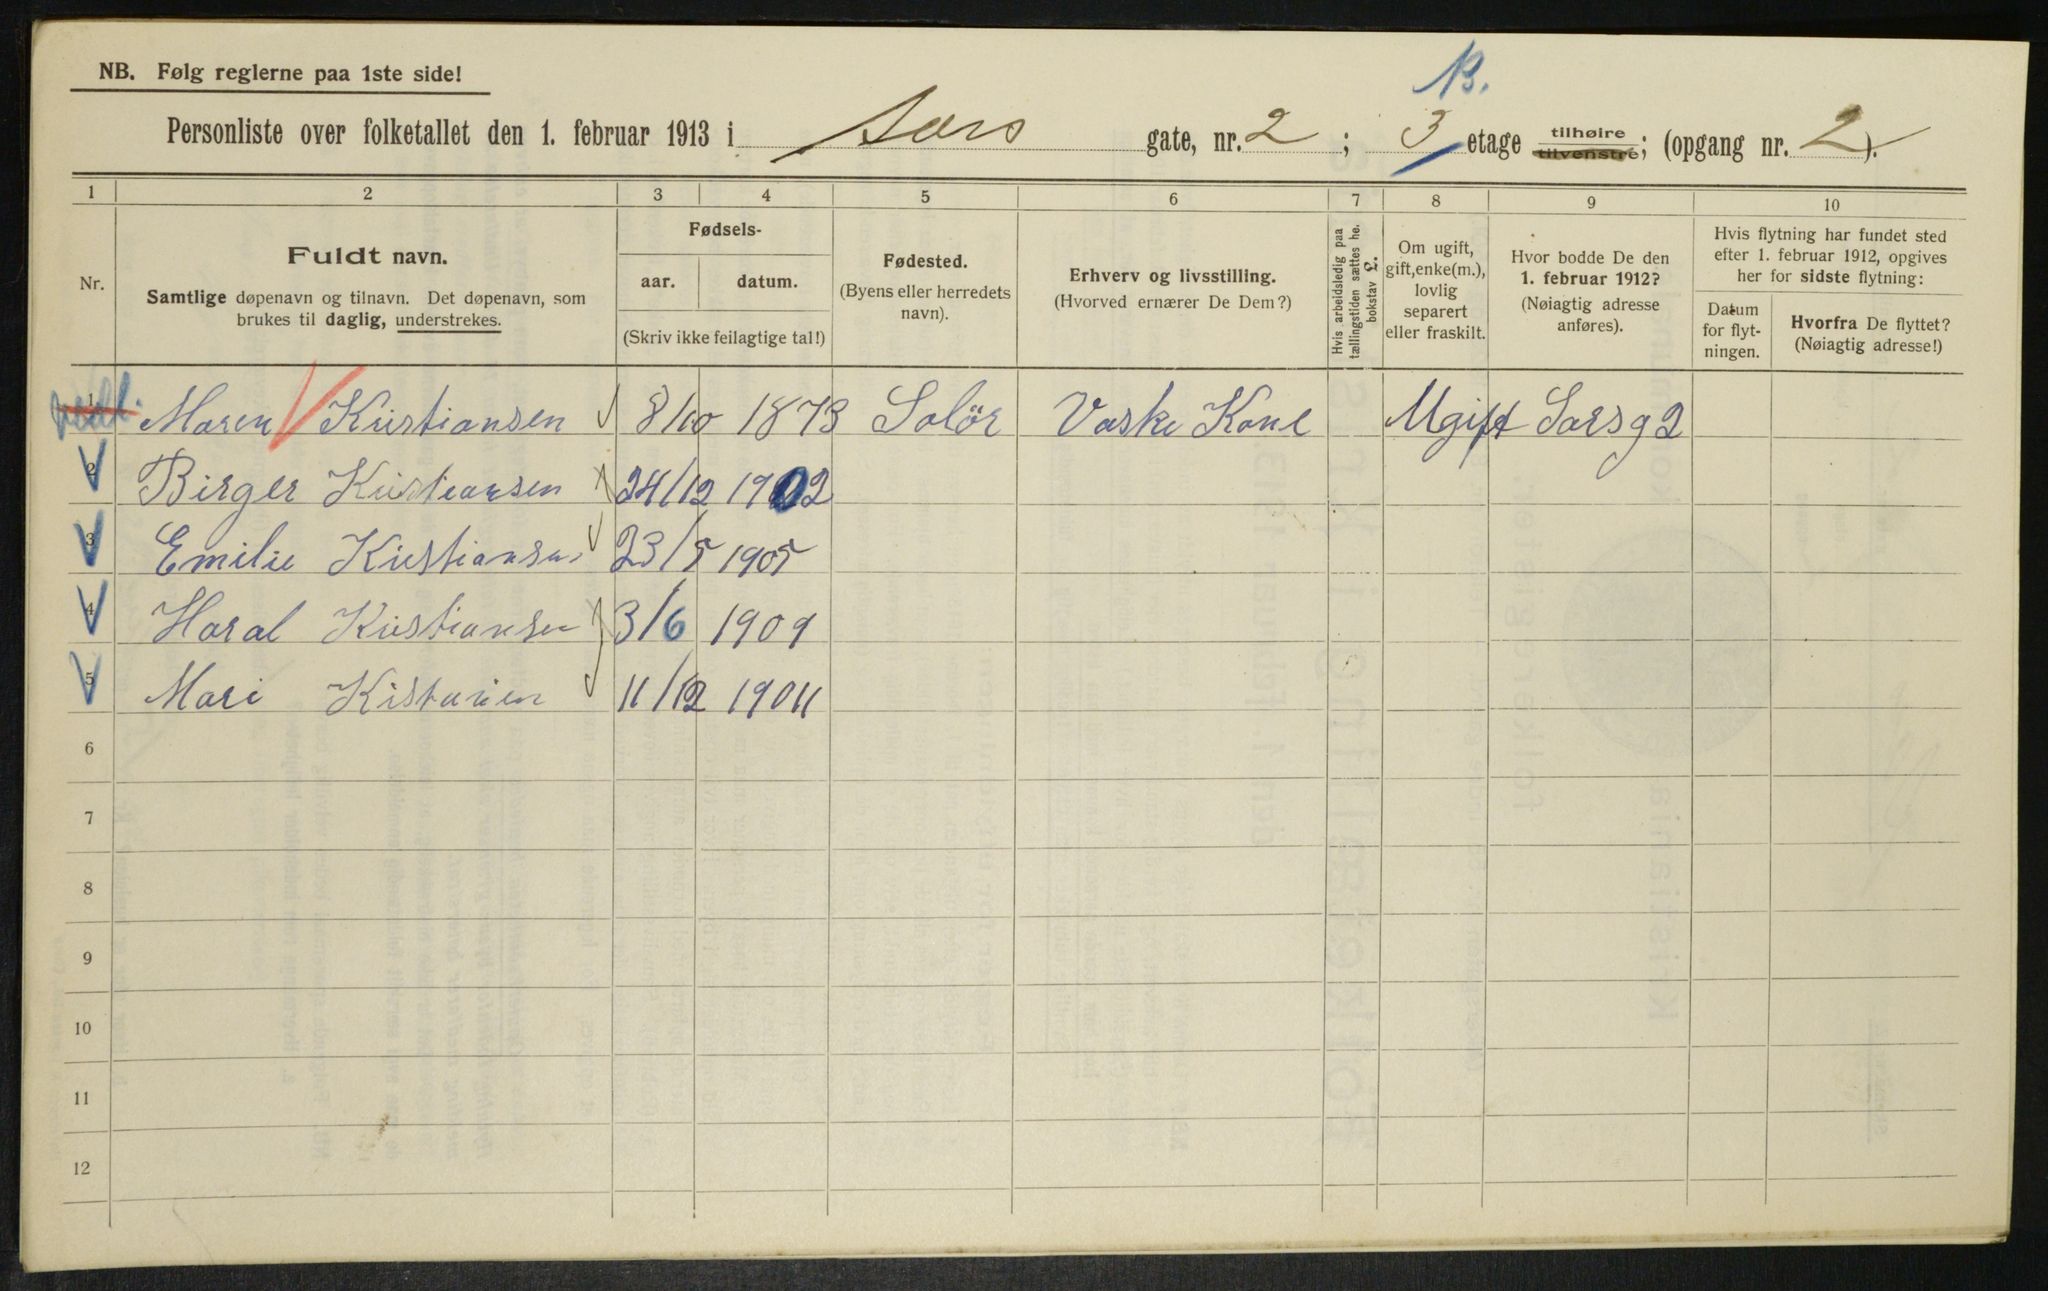 NB. Følg reglerne paa 1ste side!
B.
Personliste over folketallet den 1. februar 1913 i Sars gate, nr. 2; 3 etage tilhøire tilvenstre; (opgang nr. 2).
1 2 3 4 5 6 7 8 9 10
Nr.
Fuldt navn.
Samtlige døpenavn og tilnavn. Det døpenavn, som
brukes til daglig, understrekes.
Fødsels-
aar. datum.
(Skriv ikke feilagtige tal!)
Fødested.
(Byens eller herredets
navn).
Erhverv og livsstilling.
(Hvorved ernærer De Dem?)
Hvis arbeidsledig paa
tællingstiden sættes her
bokstav L.
Om ugift,
gift, enke(m.),
lovlig
separert
eller fraskilt.
Hvor bodde De den
1. februar 1912?
(Nøiagtig adresse
anføres).
Hvis flytning har fundet sted
efter 1. februar 1912, opgives
her for sidste flytning:
Datum
for flyt-
ningen.
Hvorfra De flyttet?
(Nøiagtig adresse!)
1 Maren Kristiansen 8/10 1873 Solör Vaske Kone Ugift Sarsg 2
2 Birger Kristiansen 24/12 1902
3 Emilie Kristiansen 23/5 1905
4 Haral Kristiansen 3/6 1909
5 Mari Kistansen 11/12 19011
6
7
8
9
10
11
12